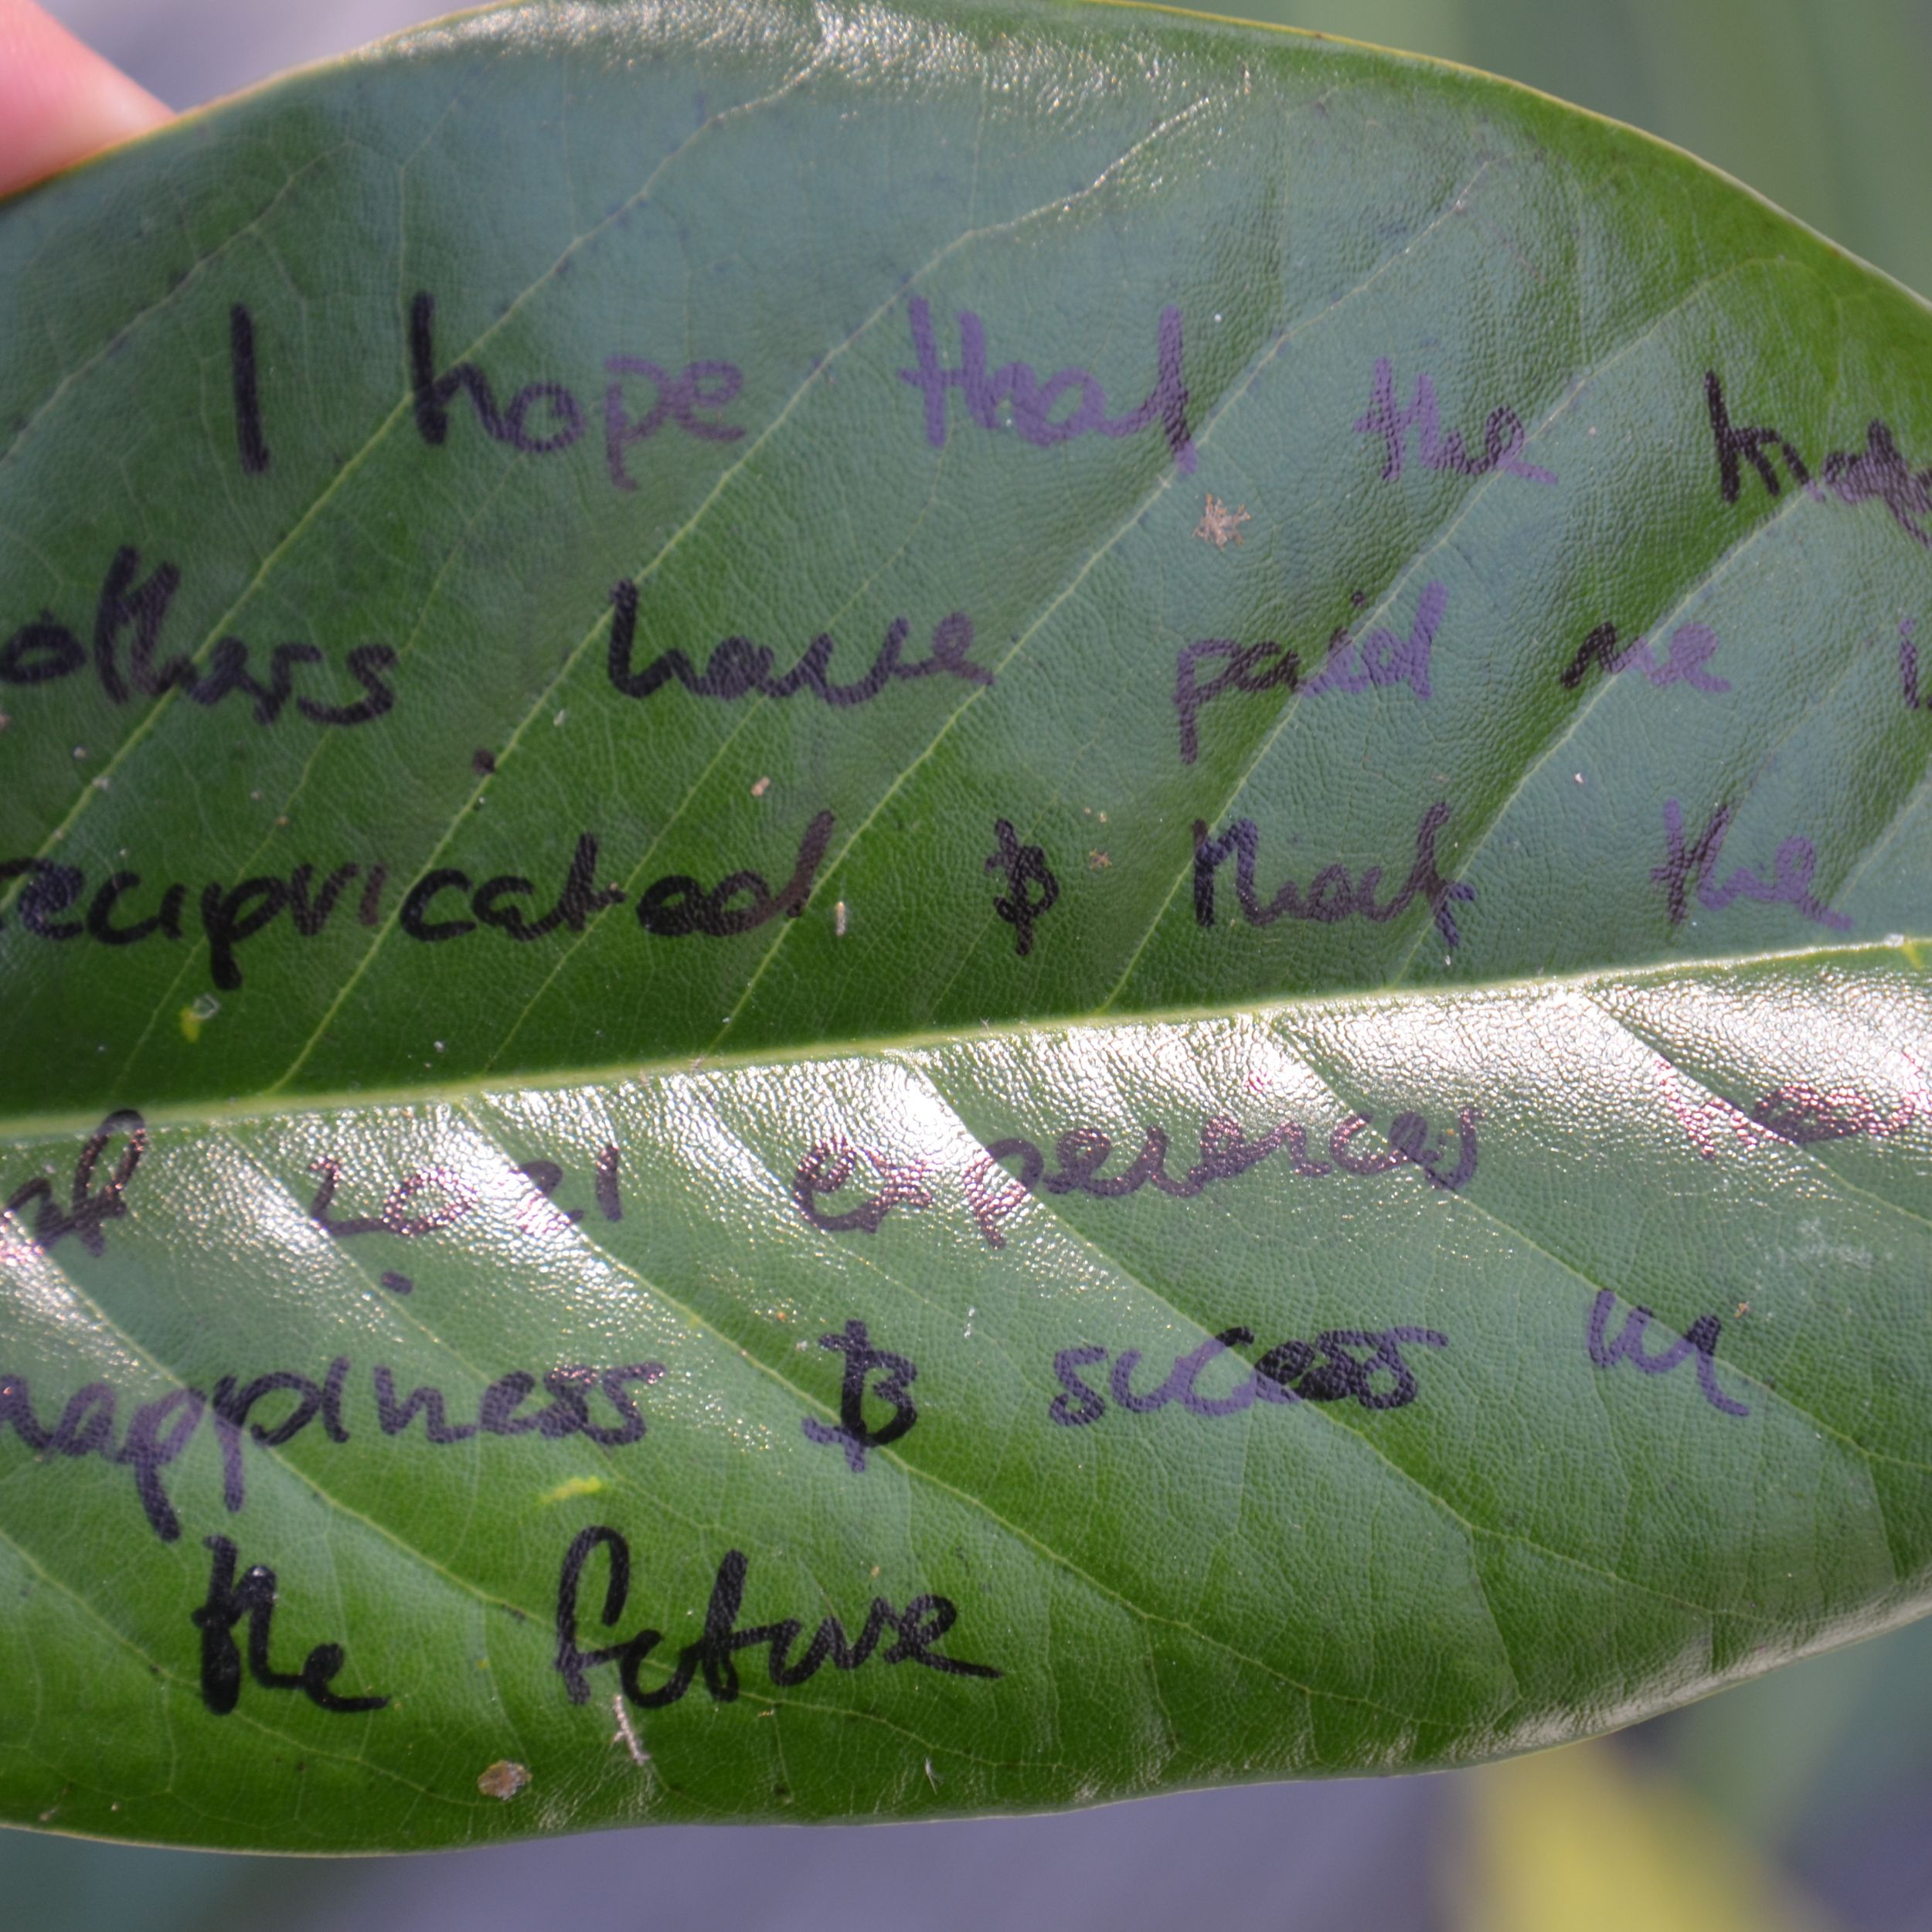 I hope that the
others have paid me
recipricated & that the
of 2021 experiences
happiness & sucess in
the future